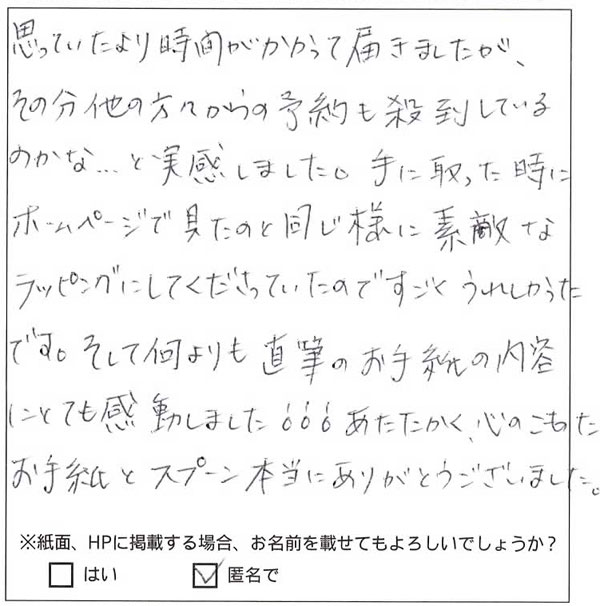 思っていたより時間がかかって届きましたが、
その分他の方々からの予約も殺到している
のかな…と実感しました。手に取った時に
ホームページで見たのと同じ様に素敵な
ラッピングにしてくださっていたのですごくうれしかった
です。そして何よりも直筆のお手紙の内容
にとても感動しました!!!あたたかく、心のこもった
お手紙とスプーン本当にありがとうございました。
※紙面、HPに掲載する場合、お名前を載せてもよろしいでしょうか?
□はい ☑匿名で